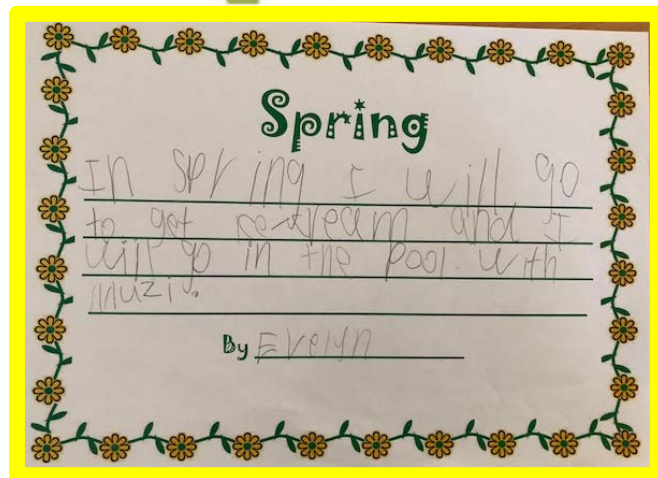 Spring
In spring I will go
to get and I
will go in the pool with
muzi.
By Evelyn